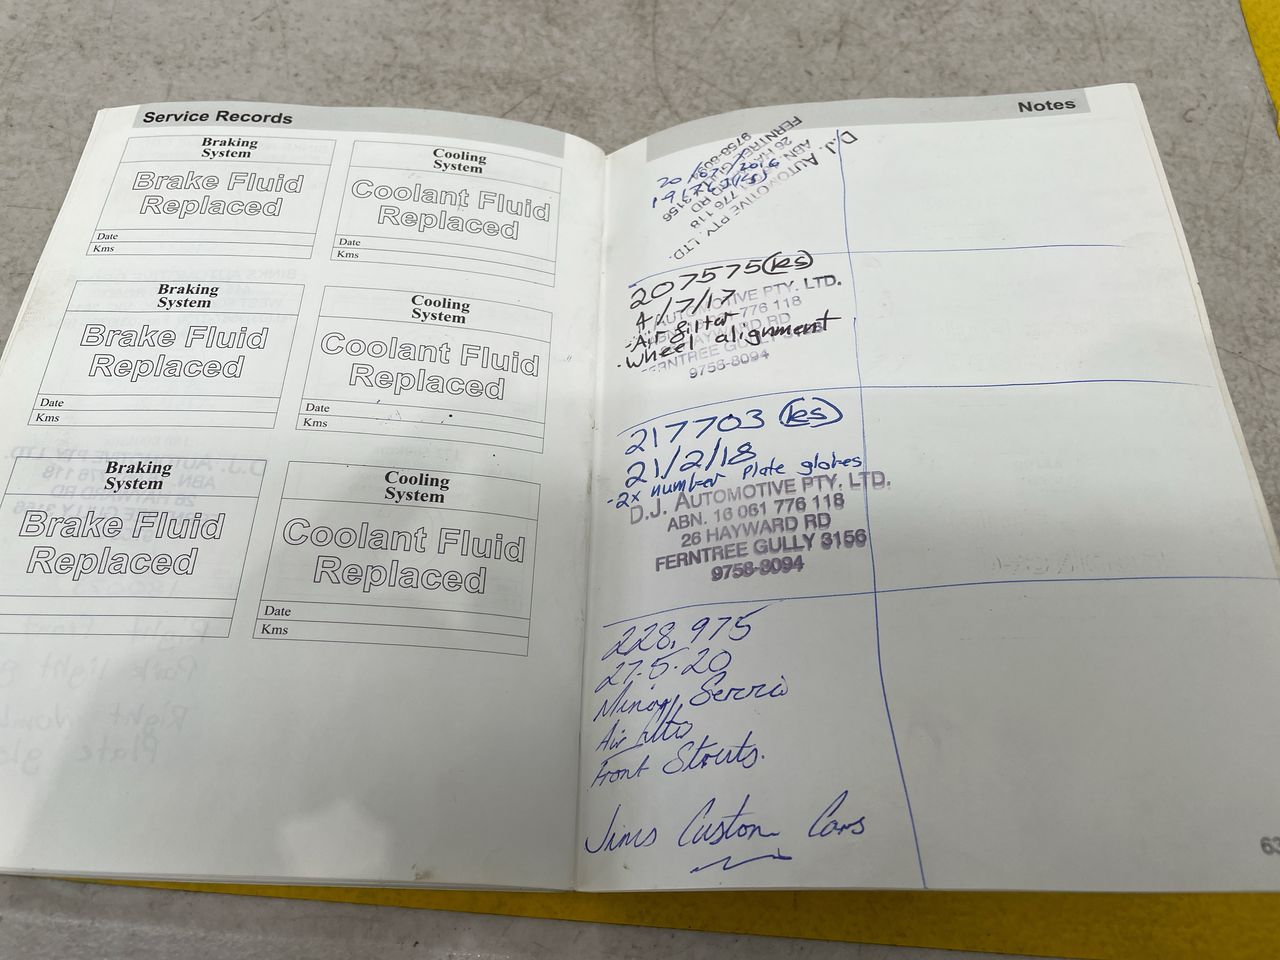 Service Records
Braking
System
Brake Fluid
Replaced
Date
Kms
Cooling
System
Coolant Fluid
Replaced
Date
Kms
Braking
System
Brake Fluid
Replaced
Date
Kms
Cooling
System
Coolant Fluid
Replaced
Date
Kms
Braking
System
Brake Fluid
Replaced
Cooling
System
Coolant Fluid
Replaced
Date
Kms
Notes
D.J. AUTOMOTIVE PTY. LTD.
ABN 776 118
RD
FERNTREE GULLY 3156
9758-8094
207575 (ks)
4/7/17
- Air filter
- wheel alignment
AUTOMOTIVE PTY. LTD.
776 118
HAYWARD RD
FERNTREE GULLY 3156
9758-8094
217703 (ks)
21/2/18
- 2x number plate globes
D.J. AUTOMOTIVE PTY. LTD.
ABN. 16 061 776 118
26 HAYWARD RD
FERNTREE GULLY 3156
9758-8094
228,975
27.5.20
Air
Front Struts.
Jims Custom Cars
63